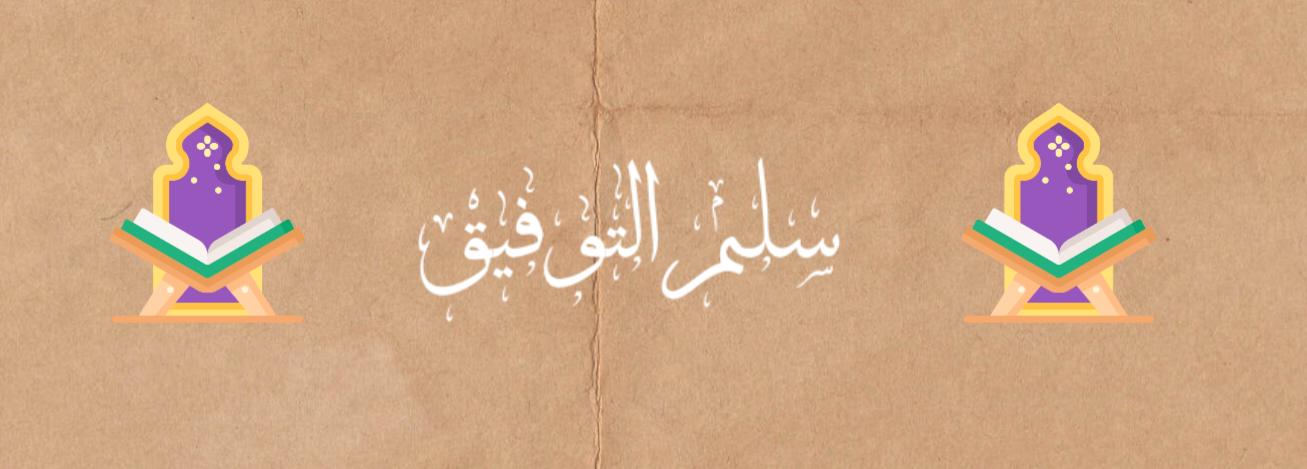 سلم التوفيق